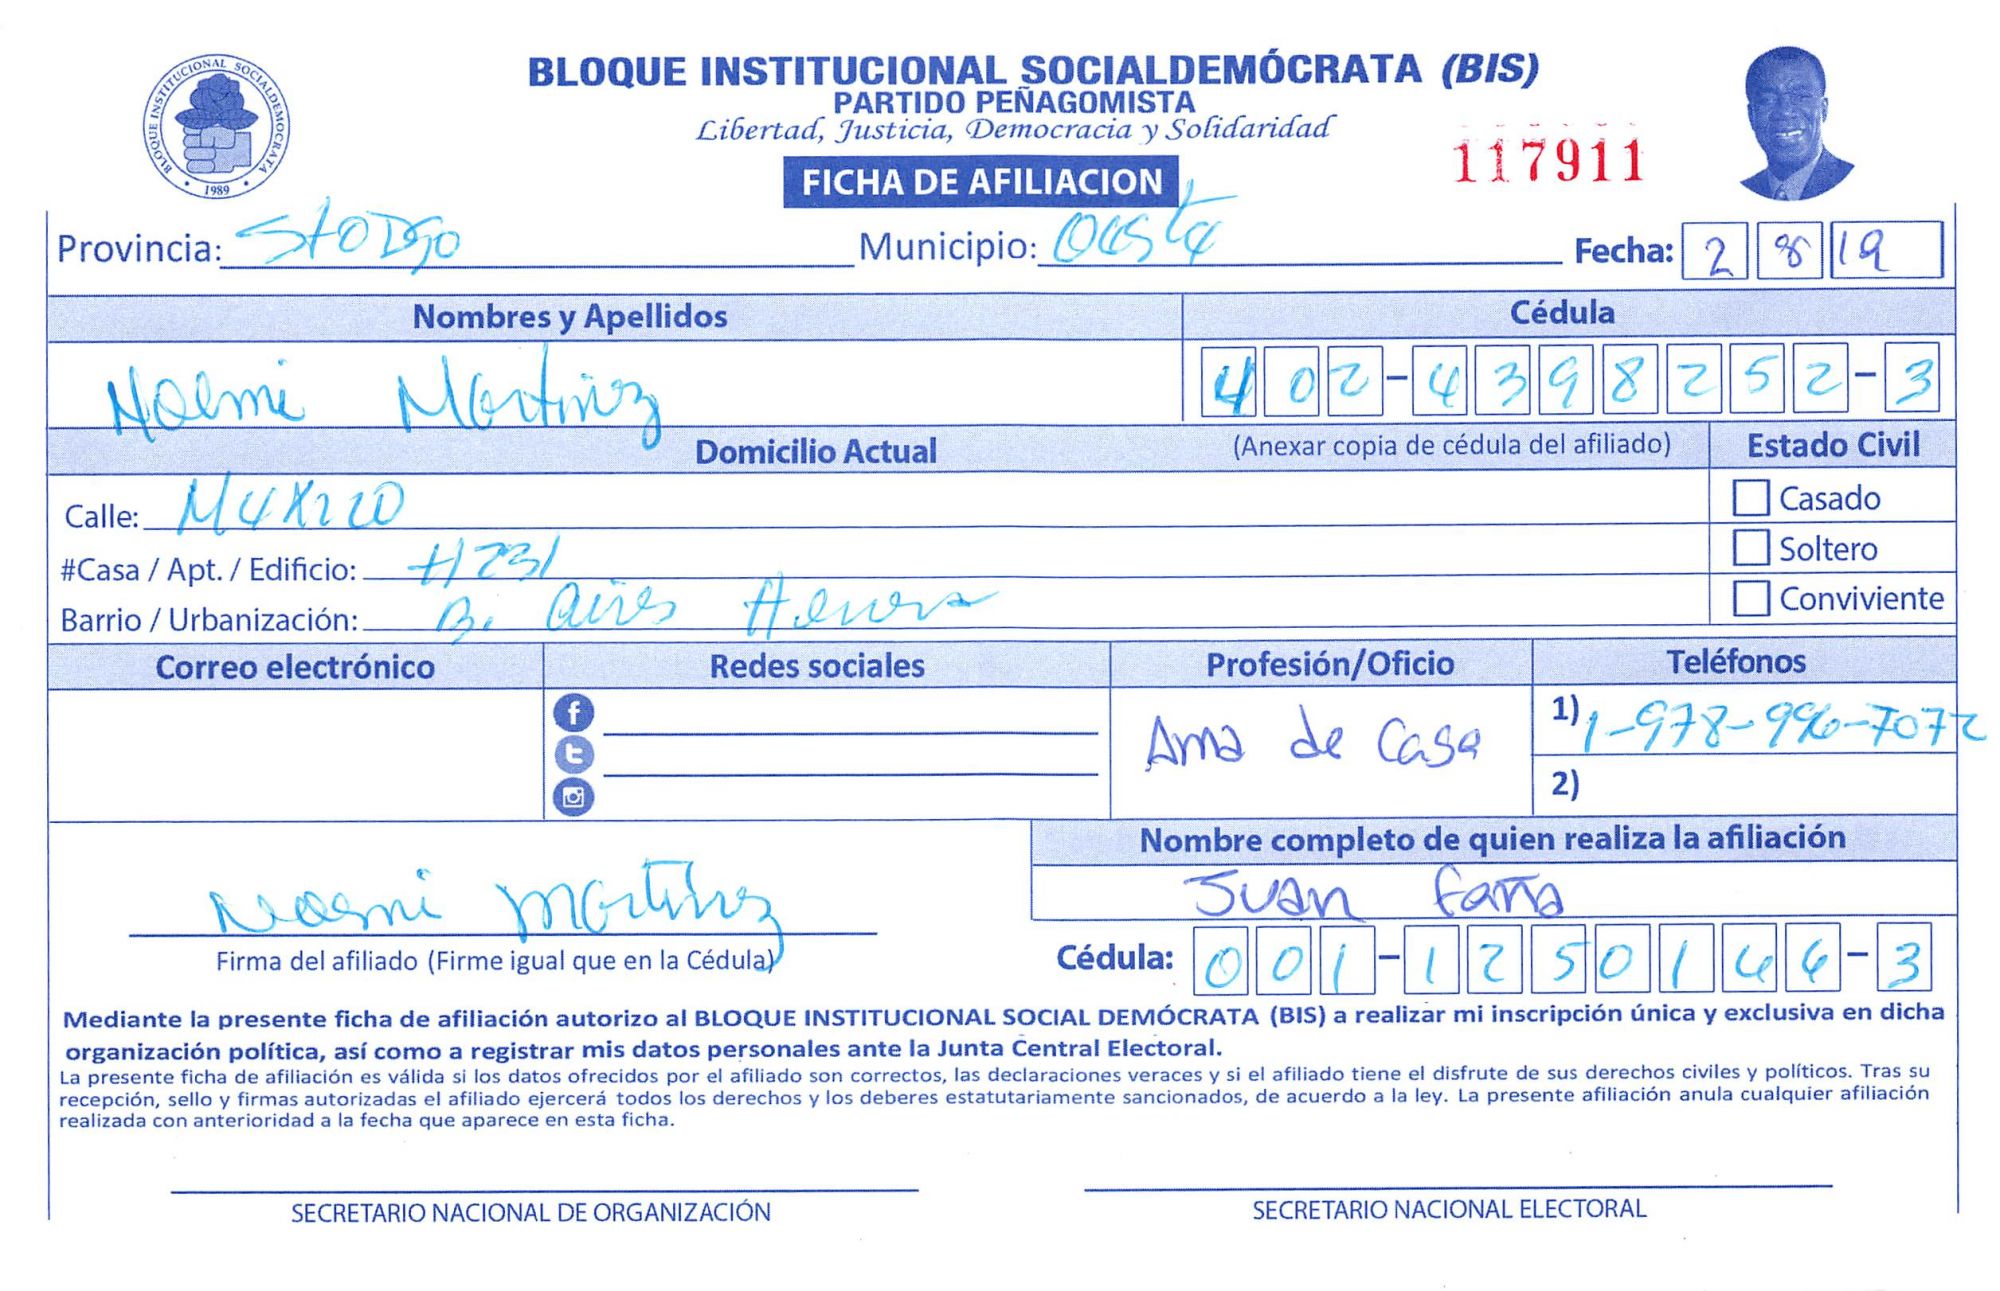 BLOQUE INSTITUCIONAL SOCIALDEMÓCRATA (BIS)
PARTIDO PEÑAGOMISTA
Libertad, Justicia, Democracia y Solidaridad
BLOQUE INSTITUCIONAL SOCIALDEMOCRATA
1989
117911
FICHA DE AFILIACION
Provincia: Sto Dgo Municipio: Oeste Fecha: 2 8 19
Nombres y Apellidos Cédula
Noemi Martinez 402-4398252-3
Domicilio Actual (Anexar copia de cédula del afiliado) Estado Civil
Calle: Casado
#Casa / Apt. / Edificio: #231 Soltero
Barrio / Urbanización: B. Aires Conviviente
Correo electrónico Redes sociales Profesión/Oficio Teléfonos
Ama de Casa 1) 1-978-996-7072
2)
Nombre completo de quien realiza la afiliación
Noemi Martinez Juan
Firma del afiliado (Firme igual que en la Cédula) Cédula: 001-1250144-3
Mediante la presente ficha de afiliación autorizo al BLOQUE INSTITUCIONAL SOCIAL DEMÓCRATA (BIS) a realizar mi inscripción única y exclusiva en dicha
organización política, así como a registrar mis datos personales ante la Junta Central Electoral.
La presente ficha de afiliación es válida si los datos ofrecidos por el afiliado son correctos, las declaraciones veraces y si el afiliado tiene el disfrute de sus derechos civiles y políticos. Tras su
recepción, sello y firmas autorizadas el afiliado ejercerá todos los derechos y los deberes estatutariamente sancionados, de acuerdo a la ley. La presente afiliación anula cualquier afiliación
realizada con anterioridad a la fecha que aparece en esta ficha.
SECRETARIO NACIONAL DE ORGANIZACIÓN SECRETARIO NACIONAL ELECTORAL